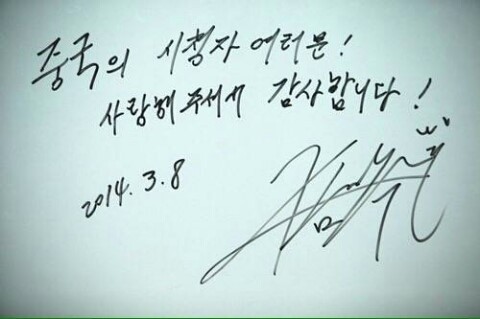 중국의 시청자 여러분!
사랑해 주셔서 감사합니다!
2014. 3. 8